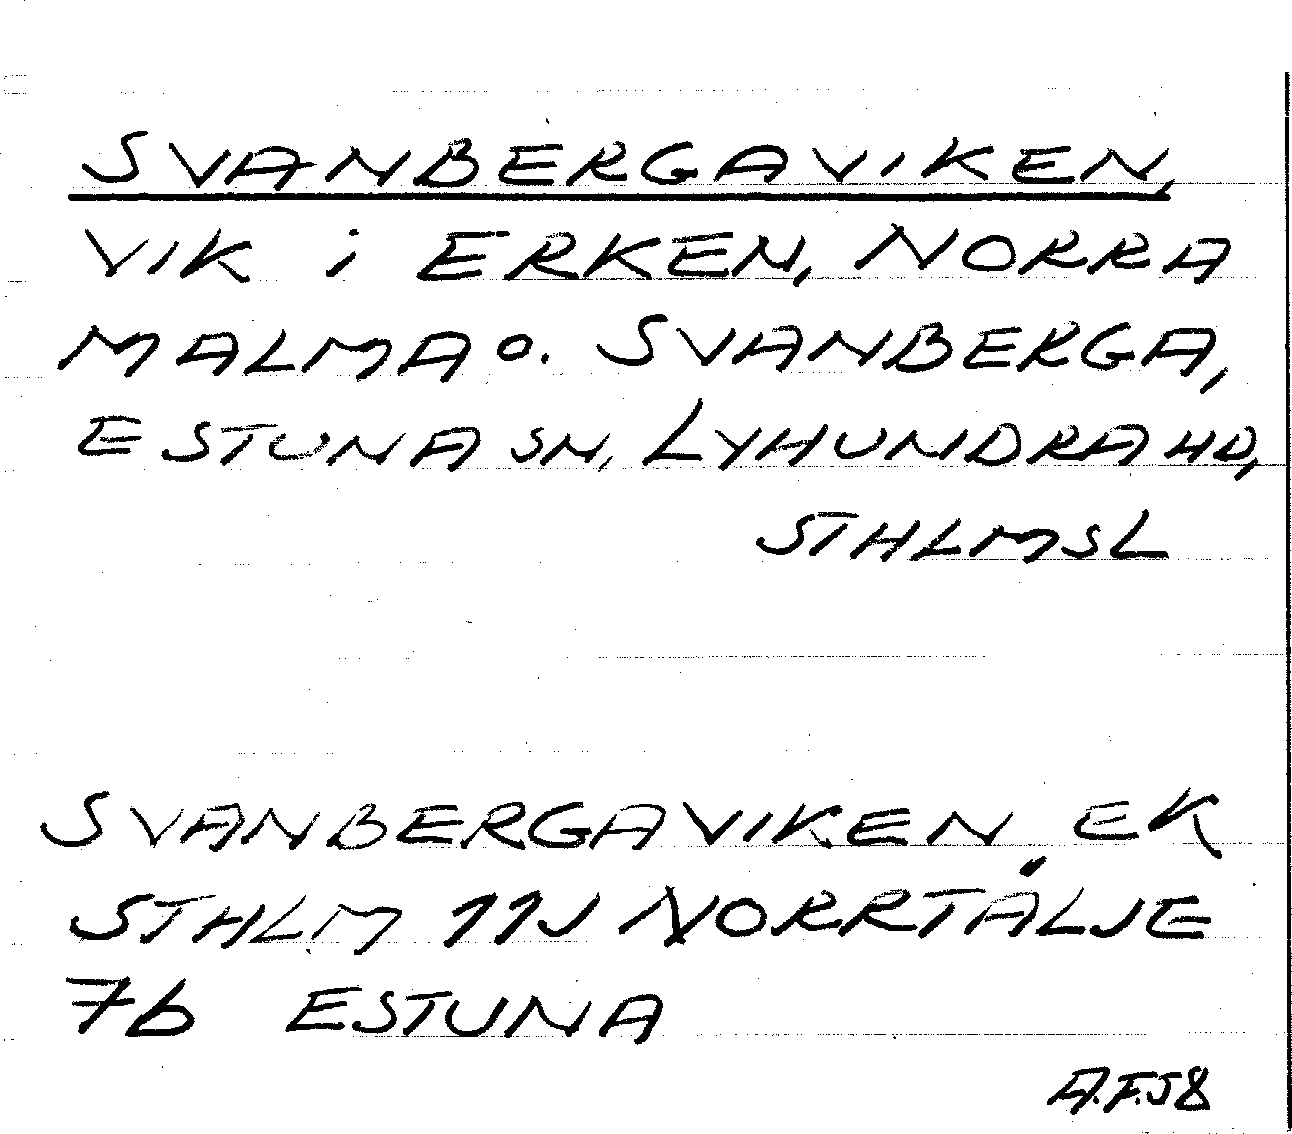 SVANBERGAVIKEN,
VIK i ERKEN, NORRA
MALMA o. SVANBERGA,
ESTUNA SN, LYHUNDRA HD,
STHLMS L
SVANBERGAVIKEN. EK
STHLM 11J NORRTÄLJE
7b ESTUNA
A.F.58